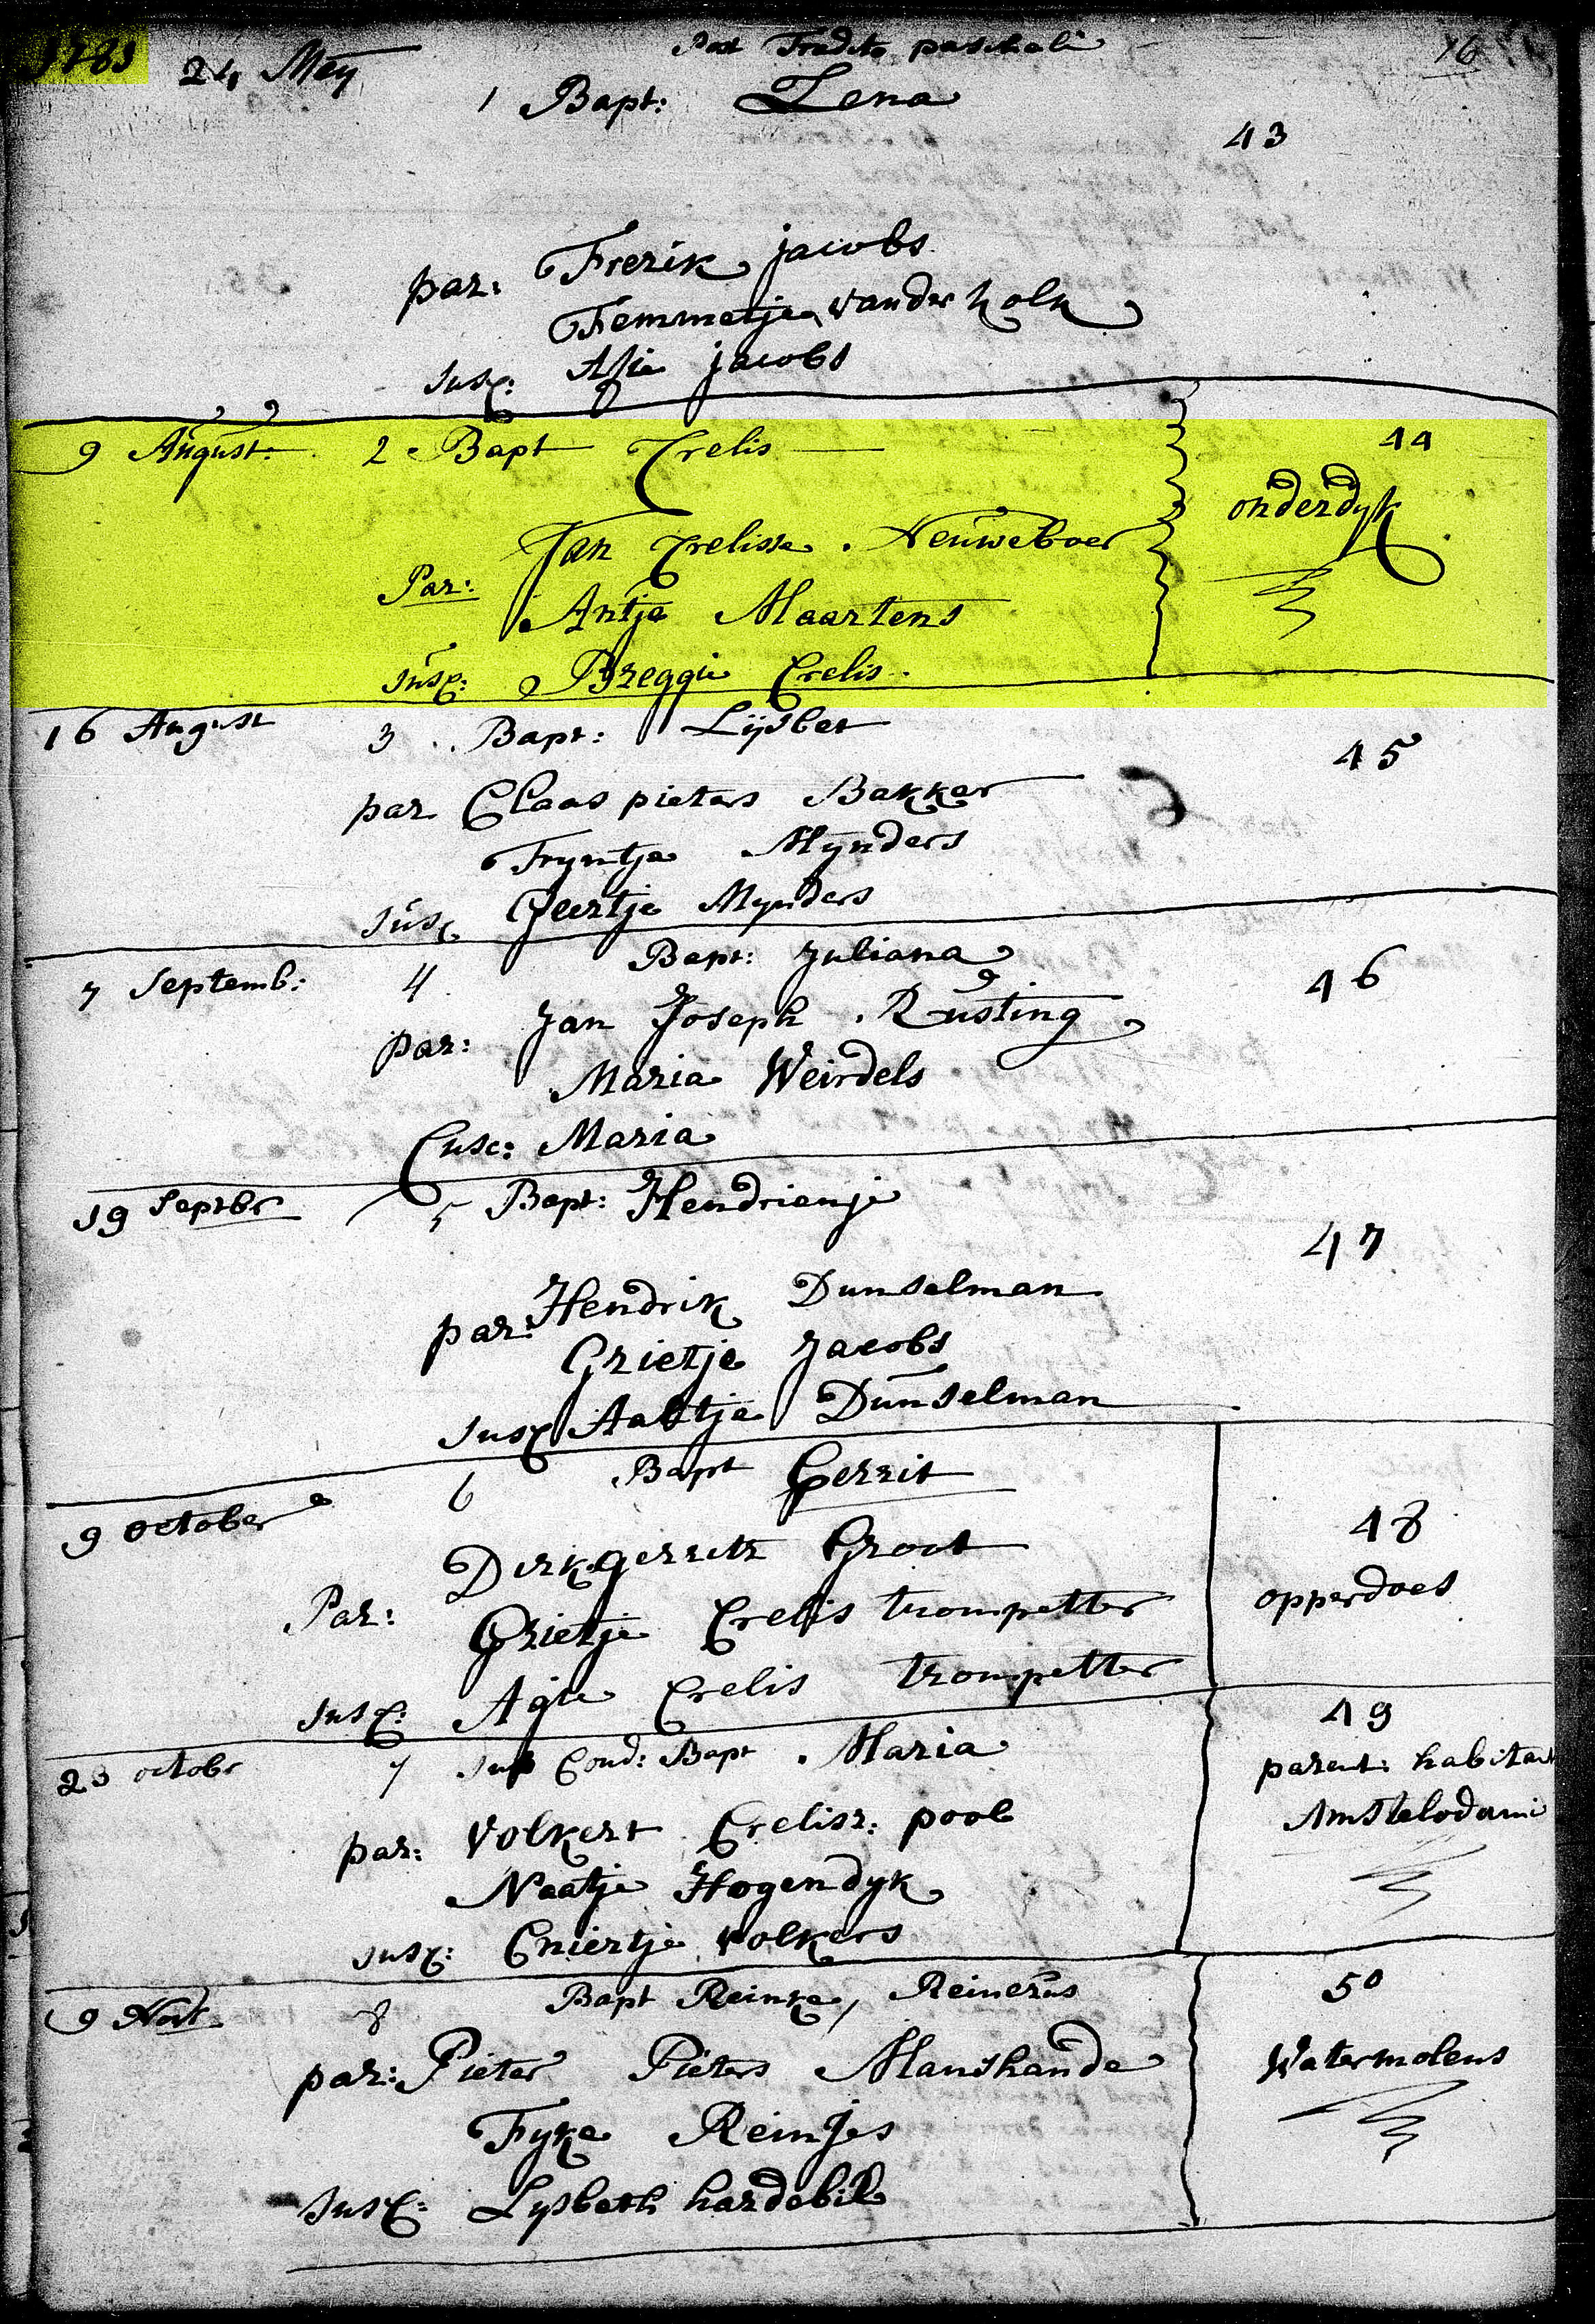 1781 24 Mey Post Tradita paschali 16
1 Bapt: Lena
43
par: Frerik jacobs
Femmetje vander kolk
Susc: Afie jacobs
9 August: 2 Bapt Crelis 44
onderdyk
Jan Crelisse Neuweboer
Par:
Antje Maartens
Susc: Breggie Crelis
16 August 3 Bapt: Lijsbet
45
par Claas pieters Bakker
Tryntje Mynders
Susc Geertje Mynders
7 Septemb: 4 Bapt: Juliana
46
par: Jan Joseph Rusting
Maria Weirdels
Susc: Maria
19 Septbr 5 Bapt: Hendrienje
47
par: Hendrik Dunselman
Grietje Jacobs
Susc Aaltje Dunselman
9 october 6 Bapt Gerrit
48
Dirk gerritz Groot
opperdoes
Par: Grietje Crelis trompetter
Susc: Agie Crelis trompetter
49
23 octobr 7 Sub Cond: Bapt Maria
parent: habitant
Amstelodami
par: Volkert Crelisz: pool
Naatje Hogendyk
Susc: Eniertje volkers
9 Novb 8 Bapt Reinke, Reinerus
50
par: Pieter Pieters Manshande
Watermolens
Fyke Reintjes
Susc: Lysbeth hardebil